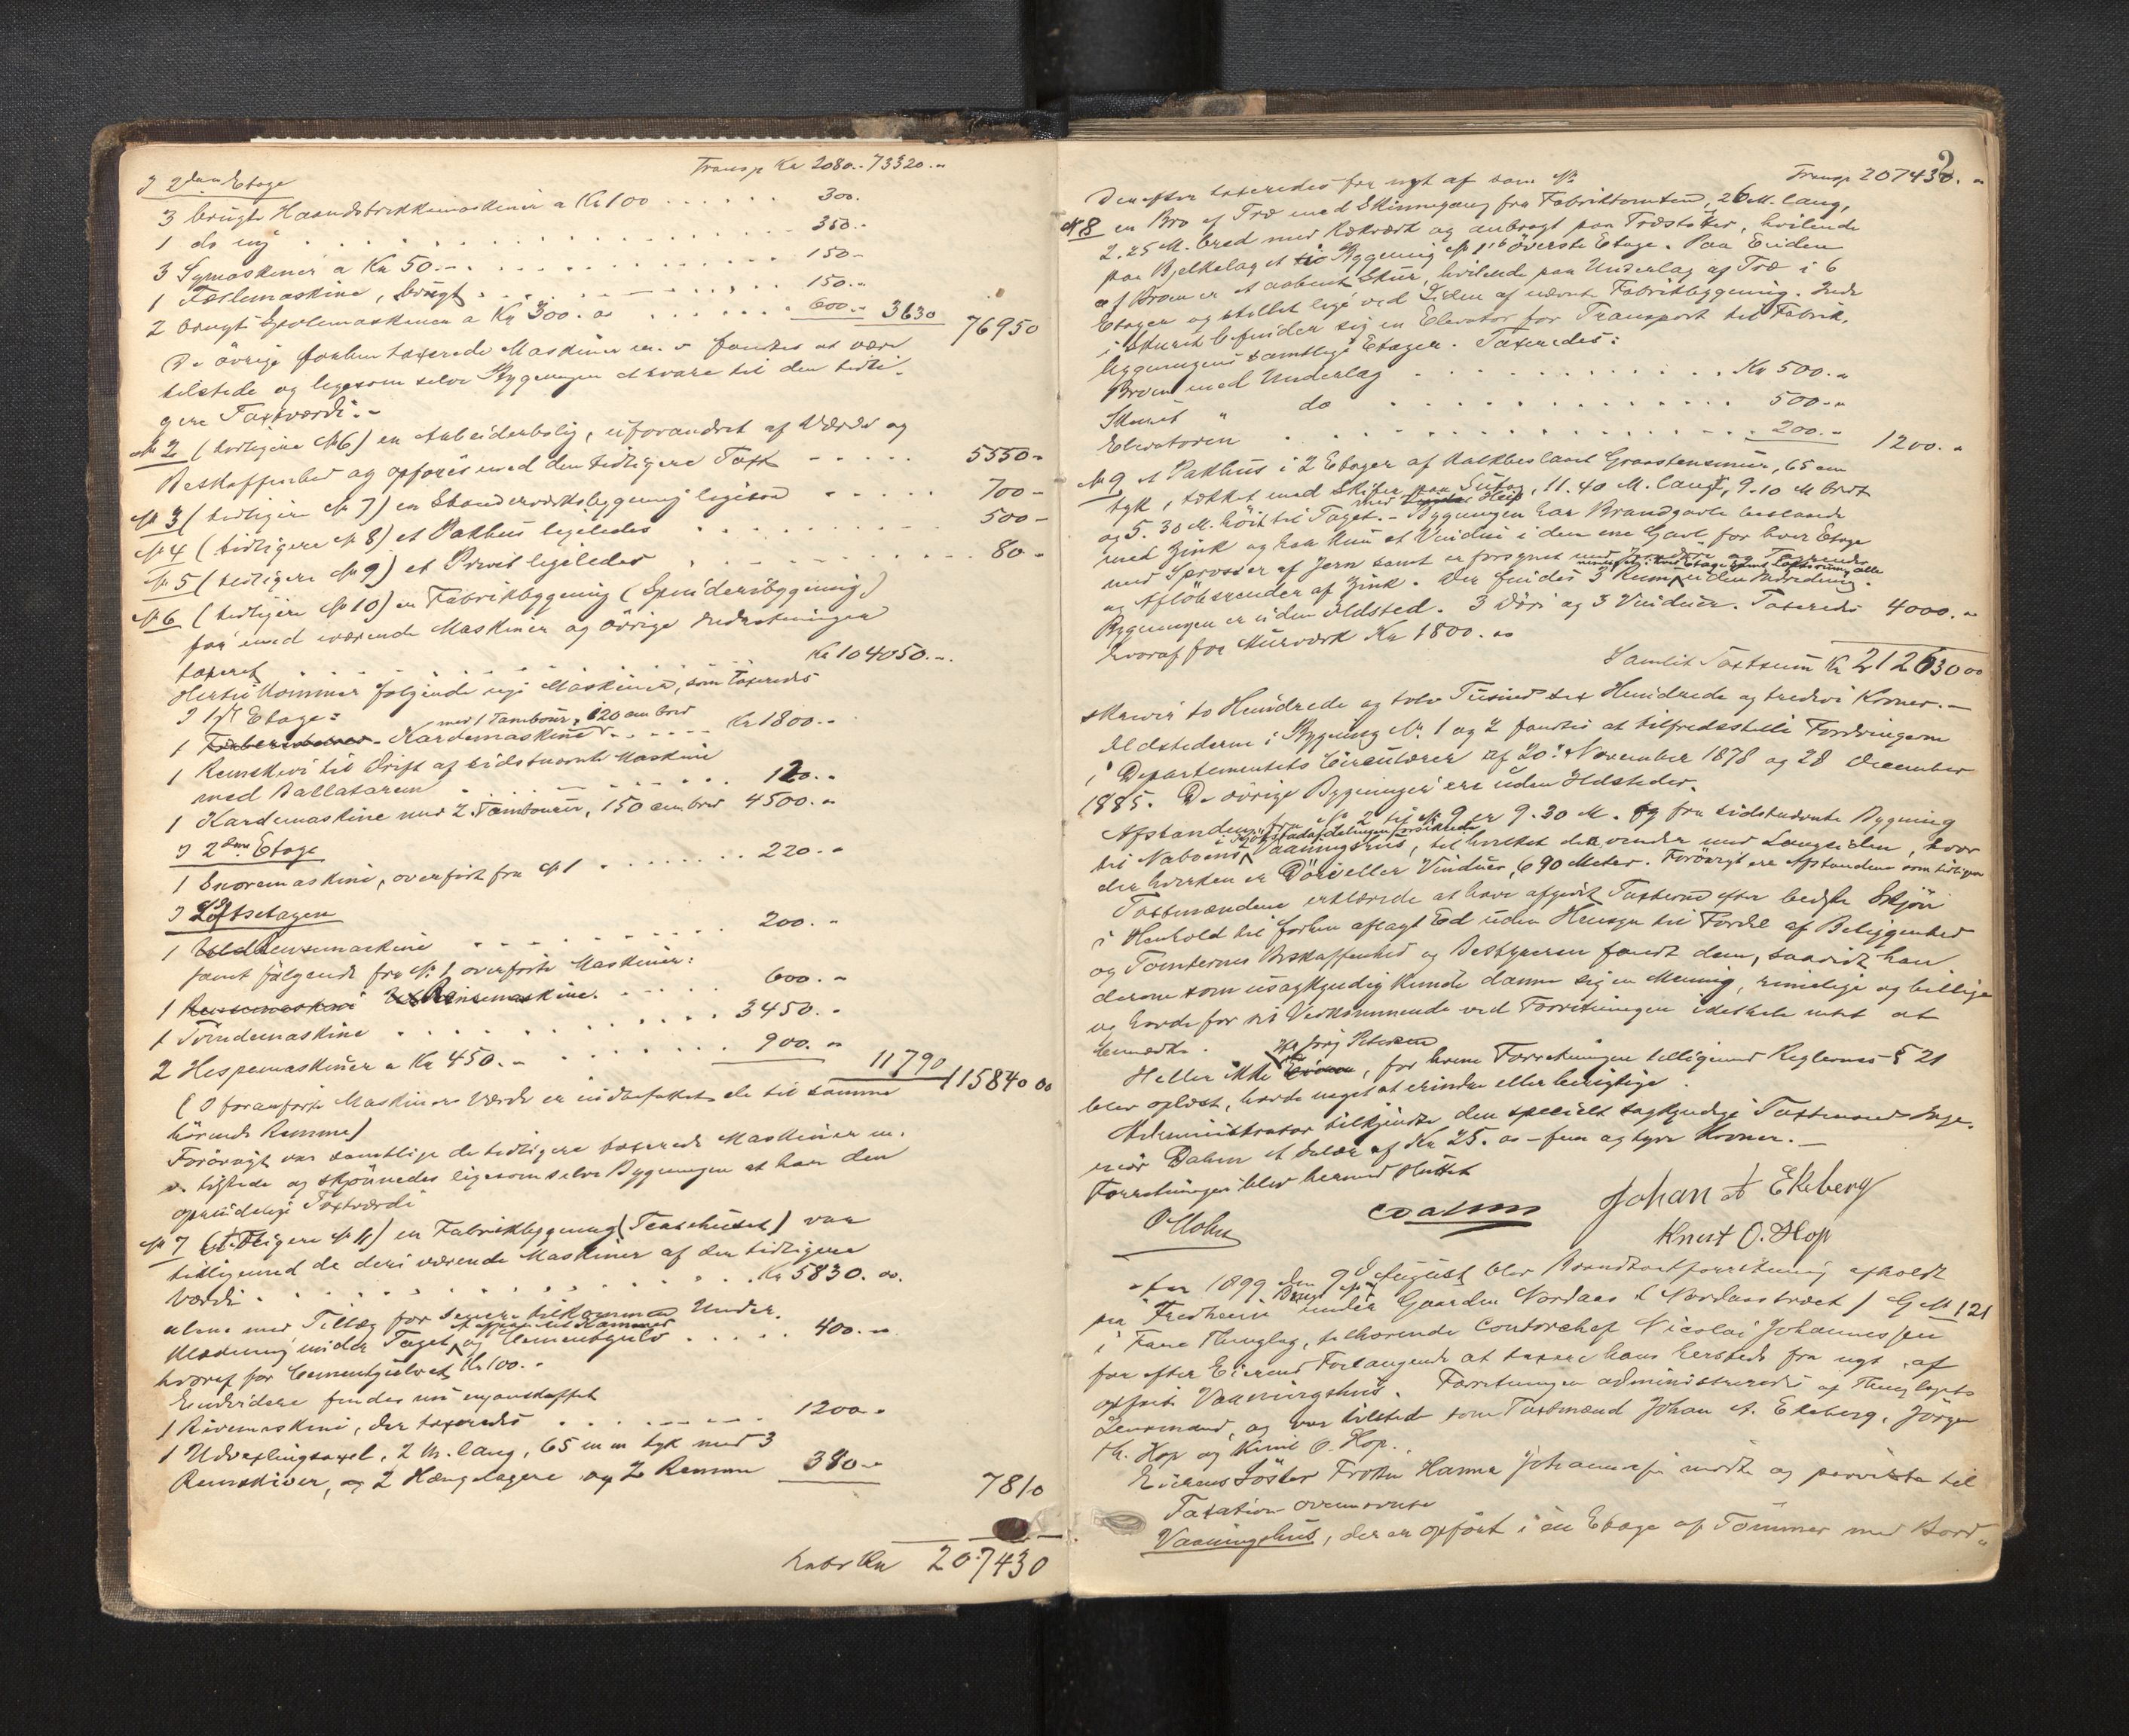 Transp Kr 2080.- 73320.-
I 2den Etage
3 brugte Haandstrikkemaskiner a Kr 100 . . . . . . 300.
1 do ny . . . . . . 350.-
3 Symaskiner a Kr 50.- . . . . . . 150.-
1 Fæstemaskine, brugt . . . . . . 150.-
2 brugte Spolemaskiner a Kr 300.00 . . . . . . 600.- 3630 76950
De övrige forhen taxerede Maskiner m. v fandtes at være
tilstede og ligesom selve Bygningen at svare til den tidli-
gere Taxtværdi.-
№ 2 (tidligere № 6) en Arbeiderbolig, uforandret af Værdi og
Beskaffenhed og opföres med den tidligere Taxt . . . . . 5550-
№ 3 (tidligere № 7) en Standerværksbygning ligesaa . . . . . 700-
№ 4 (tidligere № 8) et Pakhus ligeledes . . . . . 500-
№ 5 (tidligere № 9) et Privet ligeledes . . . . . 80-
№ 6 (tidligere № 10) en Fabrikbygning (Spinderibygning)
før med værende Maskiner og övrige Indretninger
taxeret . . . . . Kr 104050.-.
Hertil kommer fölgende nye Maskiner, som taxeredes
I 1st Etage:
med 1 Tambour, 120 cm bred
1 Kardemaskine . . . . . Kr 1800.-
1 Remskive til Drift af sidstnævnte Maskine
med Ballatarem . . . . . 120.-
1 Kardemaskine med 2 Tambourer, 150 cm bred 4500.-
I 2den Etage
1 Snoremaskine, overfört fra № 1 . . . . . 220.-
I Loftsetagen
1 Uldrensemaskine . . . . . 200.-
samt fölgende fra № 1 overförte Maskiner:
1 Rensemaskine . . . . . 600.-
1 Tvindemaskine . . . . . 3450.-
2 Hespemaskiner a Kr 450.- . . . . . 900.-
11790 115840 00
(I foranförte Maskiners Værdi er indbefattet de til samme
hörende Remme)
Forövrigt var samtlige de tidligere taxerede Maskiner m.
v. tilstede og skjönnedes ligesom selve Bygningen at have den
oprindelige Taxtværdi
№ 7 (tidligere № 11) en Fabrikbygning (Teasehuset) var
tilligemed de deri værende Maskiner af den tidligere
Værdi . . . . . Kr 5830.00.
alene med Tillæg for senere tilkommen Under-
klædning under Taget og Cementgulv . . . . . 400.-
hvoraf for Cementgulvet Kr 100.-
Endvidere findes nu nyanskaffet
1 Rivemaskine, der taxeredes . . . . . 1200.-
1 Udvexlingsaxel, 2 M. lang, 65 mm tyk med 3
Remskiver, og 2 Hængelagere og 2 Remme 380.-
7810
Latr Kr 207430
2
Transp 207430.-
Derefter taxeredes fra nyt af som №
№ 8 en Bro af Træ med Skinnegang fra Fabriktomten, 26 M. lang,
2.25 M. bred med Rækværk og anbragt paa Træstötter, hvilende
paa Bjelkelag til Bygning № 1's överste Etage. Paa Enden
af Broen er et aabent Skur, hvilende paa Underlag af Træ i 6
Etager og stillet lige ved Siden af nævnte Fabrikbygning. Inde
i Skuret befinder sig en Elevator for Transport til Fabrik-
bygningens samtlige Etager. Taxeredes:
Broen med Underlag . . . . . Kr 500.-
Skuret " do . . . . . 500.-
Elevatoren . . . . . 200.- 1200.-
№ 9 et Pakhus i 2 Etager af kalkbeslaaet Graastensmur, 65 cm
tyk, tækket med Skifer paa Sutag, 11.40 M. langt, 9.10 M bredt
og 5.30 M. höit til Taget.- Bygningen har Brandgavle beslaaede
med Zink og har kun et Vindue i den ene Gavl for hver Etage
med Sprosser af Jern samt er forsynet med Jerndöre og Tagrender
og Aflöbsrender af Zink. Der findes 3 Rum uden Indredning.
Bygningen er uden Ildsted. 3 Döre og 3 Vinduer. Taxeredes 4000.-
hvoraf for Murværk Kr 1800.00
Samlet Taxtsum Kr 212630 00
skriver to Hundrede og tolv Tusind sex Hundrede og tredive Kroner.-
Ildstederne i Bygning № 1 og 2 fandtes at tilfredsstille Fordringerne
i Departementets Circulærer af 20. November 1878 og 28 December
1885. De övrige Bygninger ere uden Ildsteder.
Afstanden fra № 2 til № 9 er 9.30 M. og fra sidstnævnte Bygning
til Naboens Vaaningshus, til hvilket det vender med Langsiden, hvor
der hverken er Döre eller Vinduer, 6 90 Meter. Forövrigt ere Afstandene som tidligere
Taxtmændene erklærede at have afgivet Taxterne efter bedste Skjön
i Henhold til forhen aflagt Ed uden Hensyn til Fordel af Beliggenhed
og Tomternes Beskaffenhed og Bestyreren fandt dem, saavidt han
derom som usagkyndig kunde danne sig en Mening, rimelige og billige
og havde for sit Vedkommende ved Forretningen idethele intet at
bemærke.
Heller ikke Hr Jörg Petersen, for hvem Forretningen tilligemed Reglernes § 21
blev oplæst, havde noget at erindre eller berigtige.
Administrator tilkjendte den specielt sagkyndige Taxtmand Inge-
niör Dahm et Salær af Kr 25.00 - fem og tyve Kroner.-
Forretningen blev hermed sluttet
Johan A Ekeberg
Knut O. Hop
Aar 1899 den 9de August blev Brandtaxtforretning afholdt
paa Fredheim under Gaarden Nordaas (Nordaastræet) G № 121
i Fane Thinglag, tilhörende Contorchef Nicolai Johannessen
for efter Eierens Forlangende at taxere hans hersteds fra nyt af
opfört Vaaningshus. Forretningen administreredes af Thinglagets
Lensmand, og var tilstede som Taxtmænd Johan A. Ekeberg, Jörgen
H. Hop og Knut O. Hop.
Eierens Söster Fröken Hanna Johannessen mödte og paaviste til
Taxation ovennævnte
Vaaningshus, der er opfört i en Etage af Tömmer med Bord-